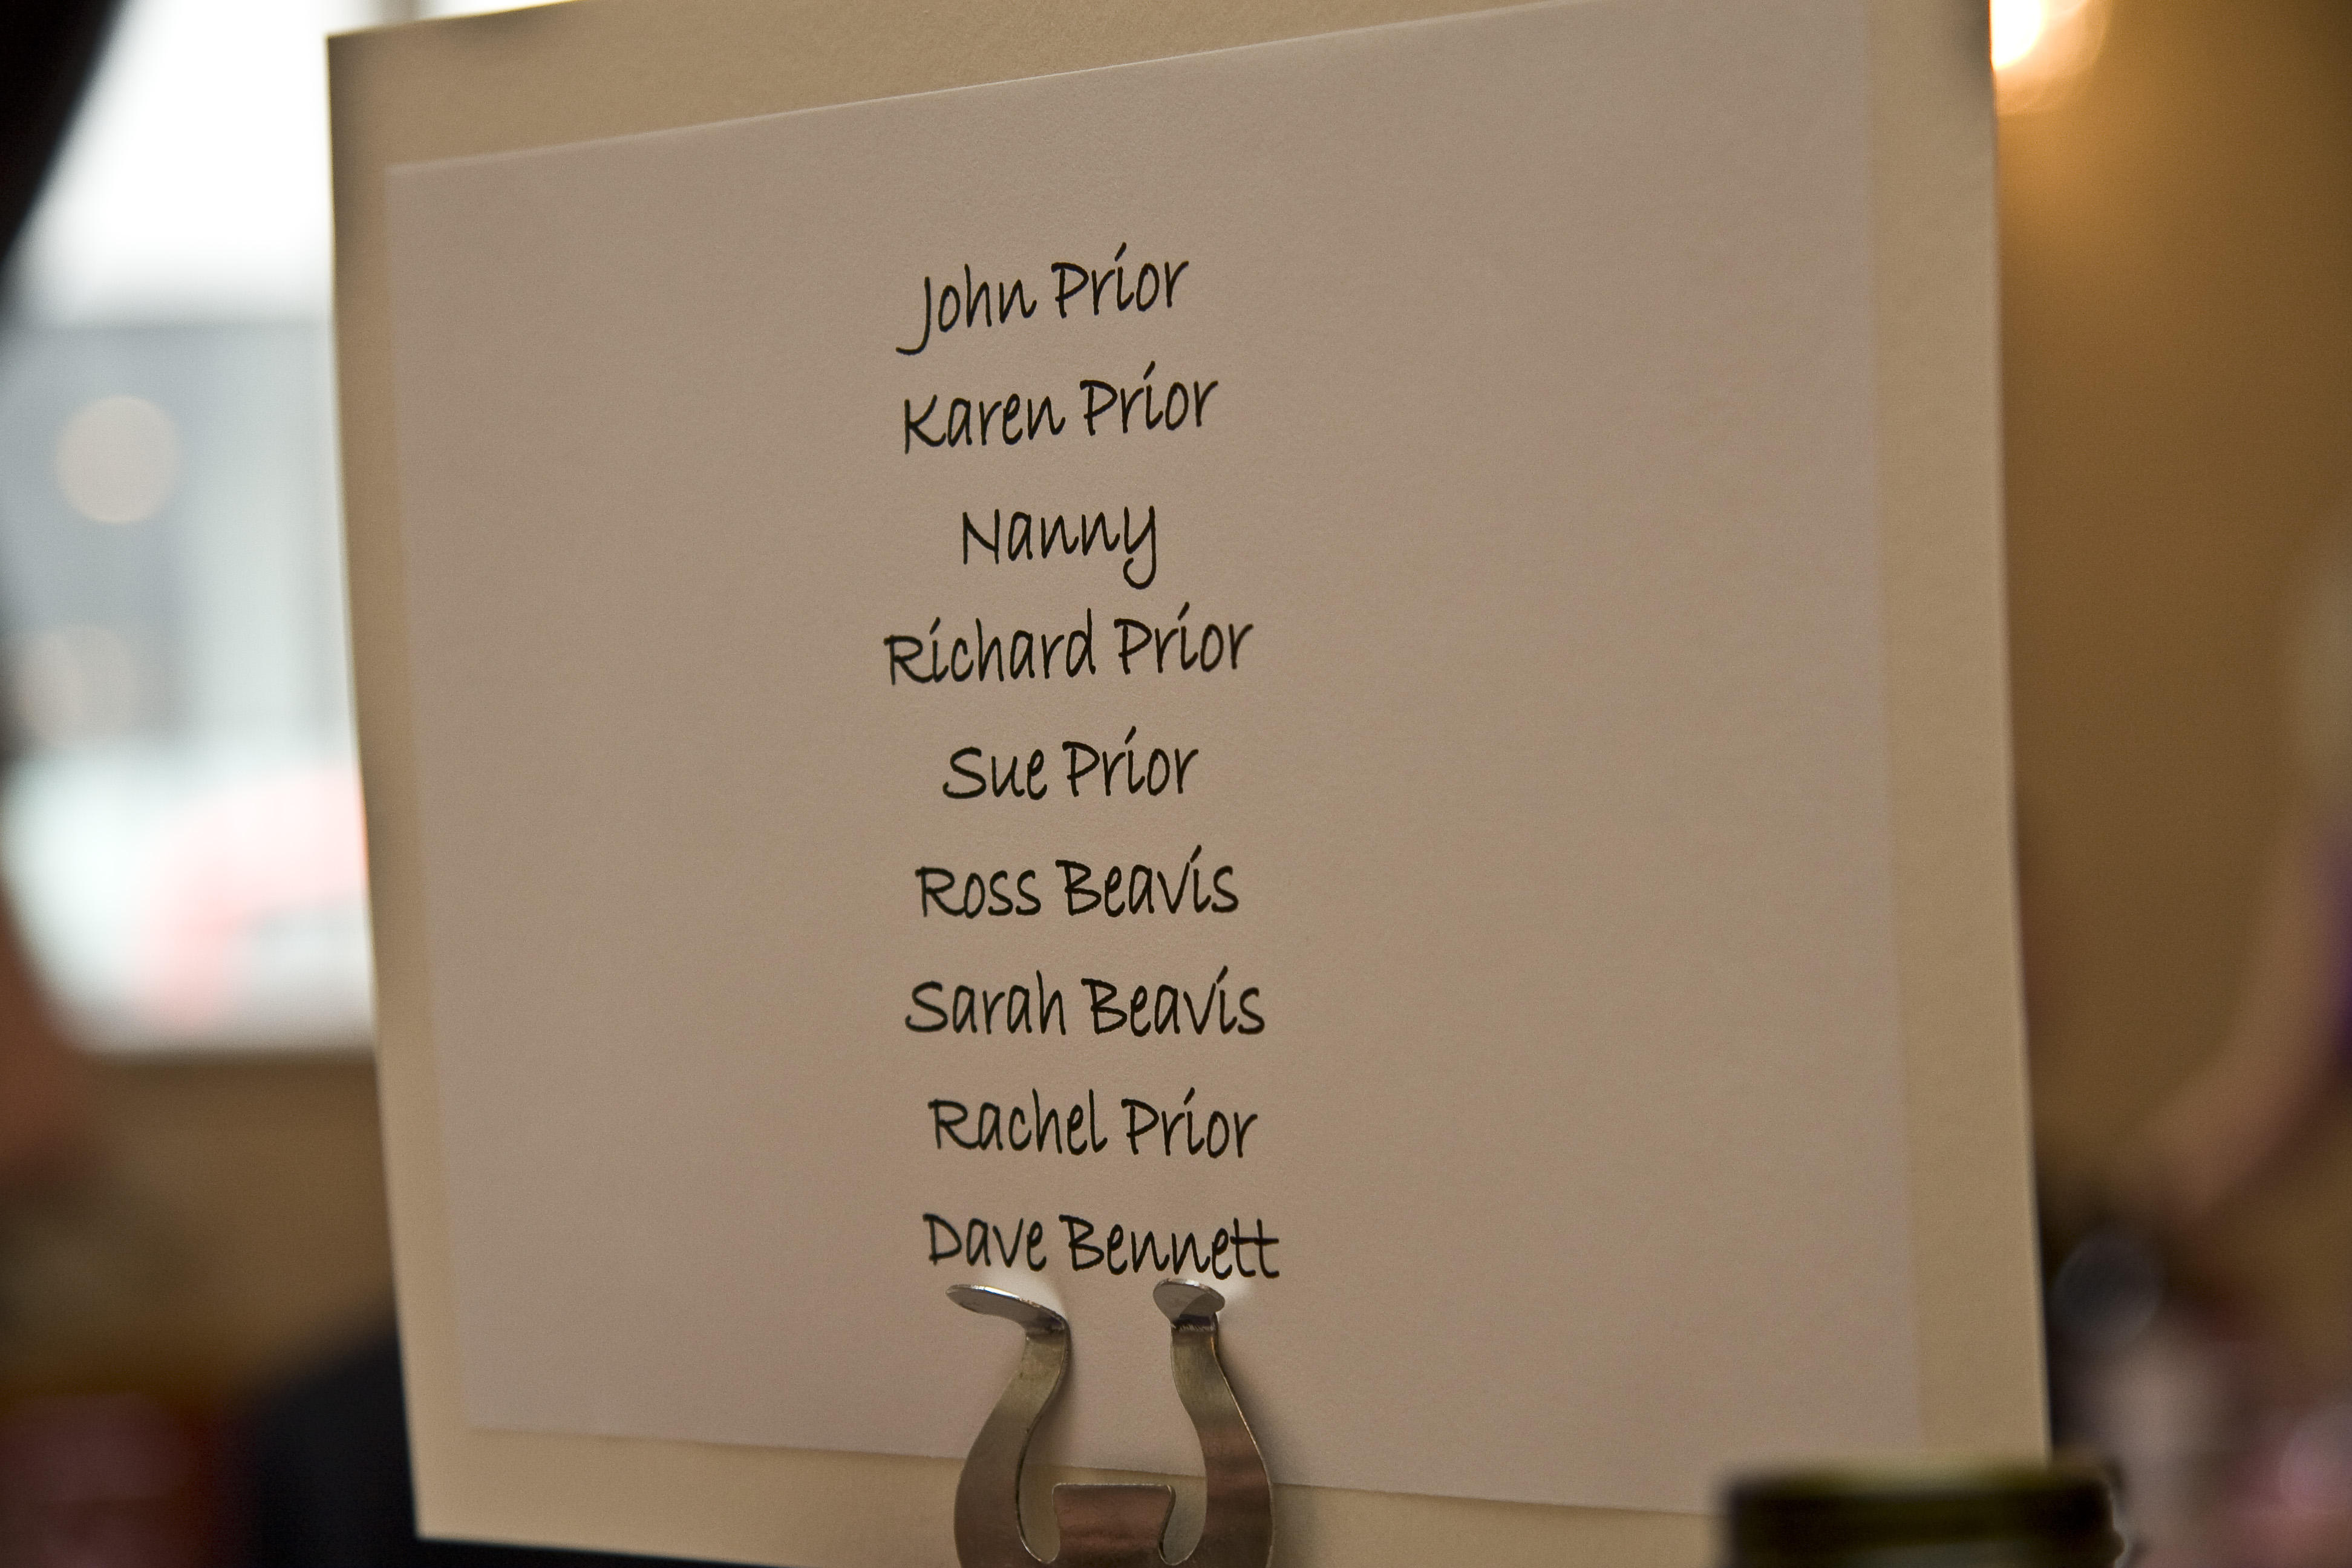 John Prior
Karen Prior
Nanny
Richard Prior
Sue Prior
Ross Beavis
Sarah Beavis
Rachel Prior
Dave Bennett